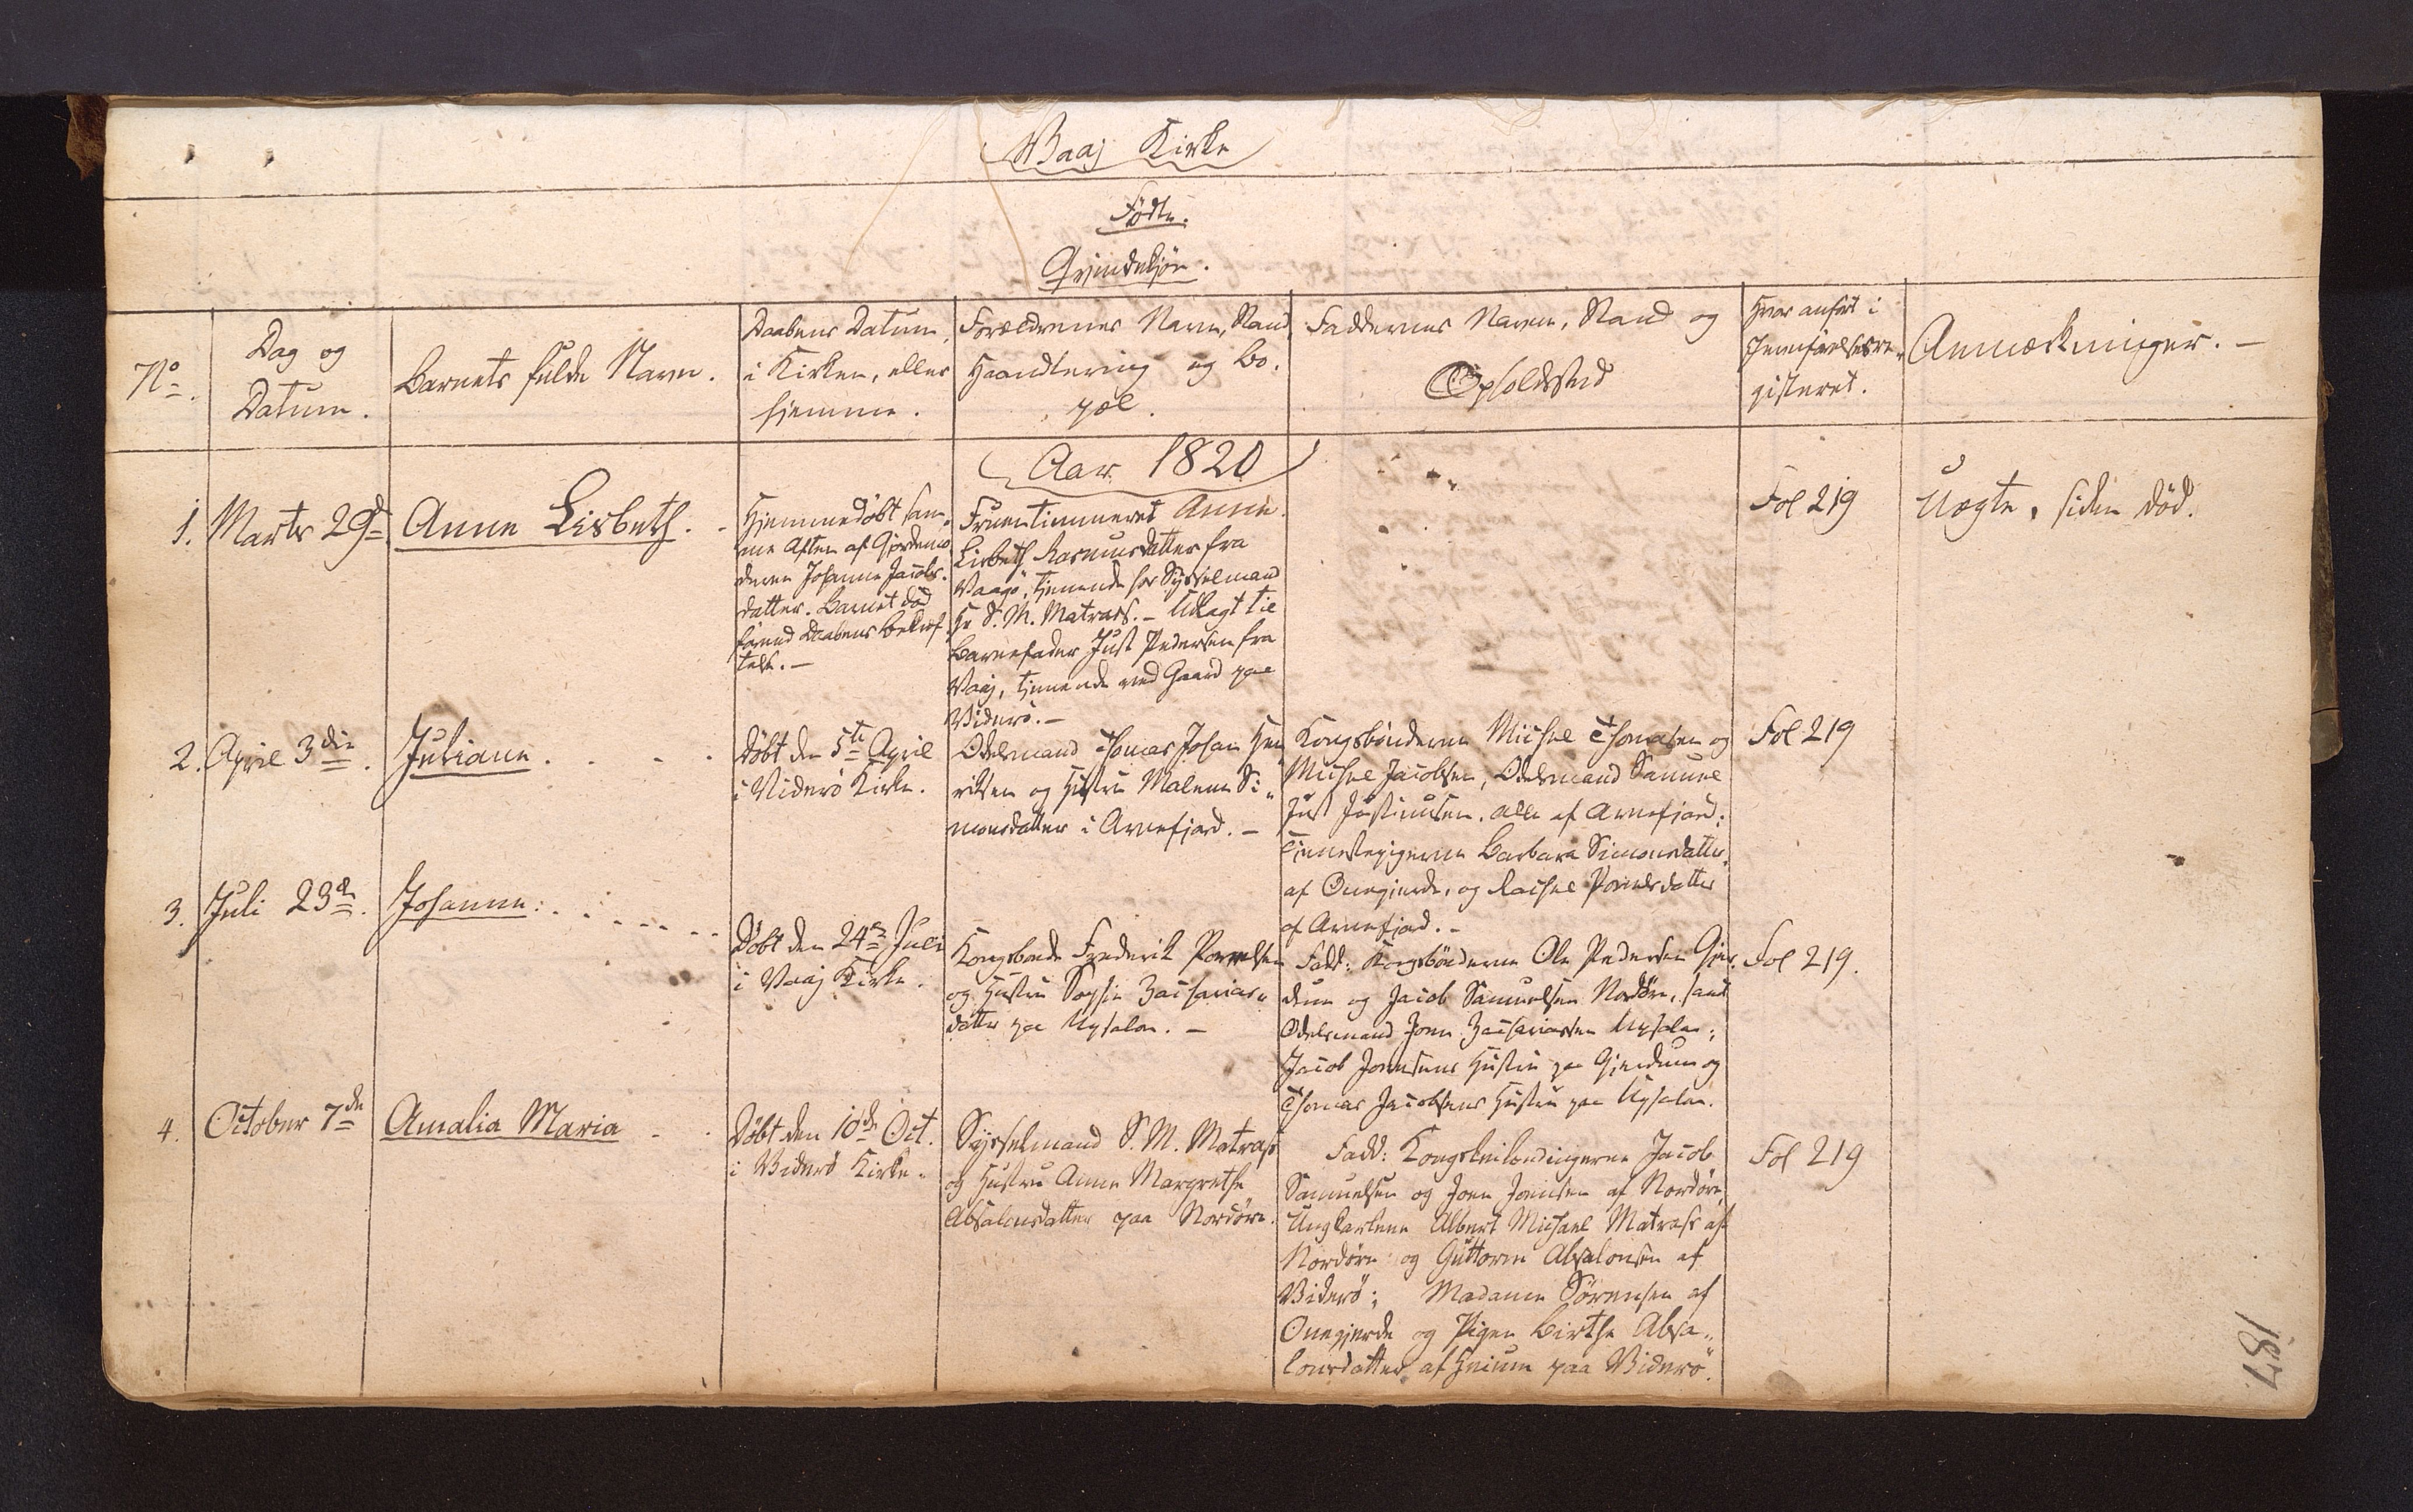 Vaaj Kirke
Födte.
Qvindekjön.
No.
Dag og
Datum.
Barnets fulde Navn.
Daabens Datum,
i Kirken, eller
hjemme.
Forældrenes Navn, Stand,
Haandtering og Bo-
pæl.
Faddernes Navn, Stand og
Opholdssted
Hvor anfört i
Jevnförelsesre-
gisteret.
Anmærkninger. -
Aar 1820
1. Marts 29d Anne Lisbeth. -
Hjemmedöbt sam-
me Aften af Gjordemo
deren Johanne Jacobs-
datter. Barnet död
förend Daabens Bekræf
telse. -
Fruentimmeret Anne
Lisbeth Rasmusdatter fra
Vaagö, tjenende hos Sysselmand
Hr S. M. Matrass. - Udlagt til
Barnefader Just Pedersen fra
Vaaj, tjenende ved Gaard paa
Viderö. -
Fol 219
Uægte, siden död.
2. April 3die. Juliane. . - -
Döbt den 5te April
i Viderö Kirke.
Odelsmand Thomas Johan Hen
riksen og Hustru Malene Si-
monsdatter i Arnefjord. -
Kongsbönderne Michel Thomasen og
Michel Jacobsen, Odelsmand Samuel
Just Justinusen, alle af Arnefjord;
Tjenestepigerne Barbara Simonsdatter,
af Onegjerde, og Rachel Poulsdatter
af Arnefjord. -
Fol 219
3. Juli 23de. Johanne: . . - - - -
Döbt den 24de Juli
i Vaaj Kirke.
Kongsbonde Frederik Poulsen
og Hustru Sophie Zacharias-
datter paa Upsalen. -
Fadd: Kongsbönderne Ole Pedersen Gjer-
dum og Jacob Samuelsen Nordöre, samt
Odelsmand Joen Zachariassen Upsalen;
Jacob Joensens Hustru paa Gjerdum og
Thomas Jacobsens Hustru paa Upsalen.
Fol 219.
4. October 7de Amalia Maria - -
Döbt den 10de Oct.
i Viderö Kirke.
Sysselmand S. M. Matrass
og Hustru Anne Margrethe
Absalonsdatter paa Nordöre.
Fadd: Jacob
Samuelsen og Joen Joensen af Nordöre,
Ungkarlene Albert Michael Matrass af
Nordöre og Guttorm Absalonsen af
Viderö; Madame Sörensen af
Onegjerde og Pigen Birthe Absa-
lonsdatter af paa Viderö.
Fol 219
187